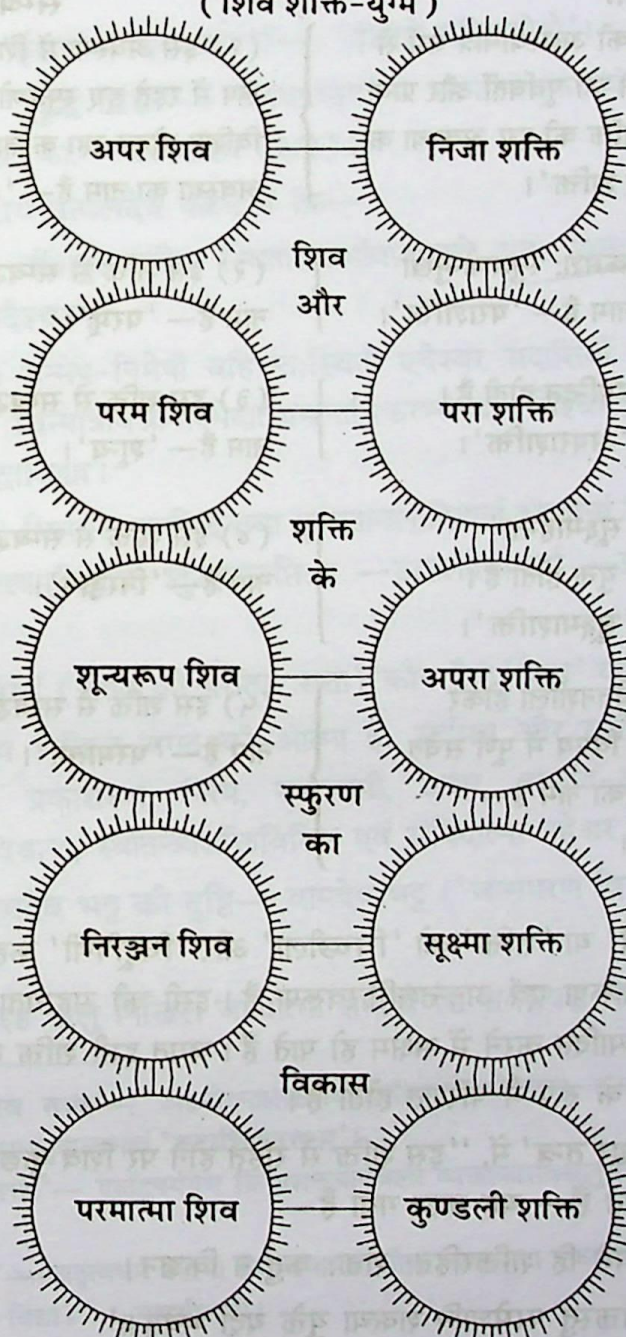 ( शिव शक्ति-युग्म )
अपर शिव
निजा शक्ति
शिव
और
परम शिव
परा शक्ति
शक्ति
के
शून्यरूप शिव
अपरा शक्ति
स्फुरण
का
निरञ्जन शिव
सूक्ष्मा शक्ति
विकास
परमात्मा शिव
कुण्डली शक्ति